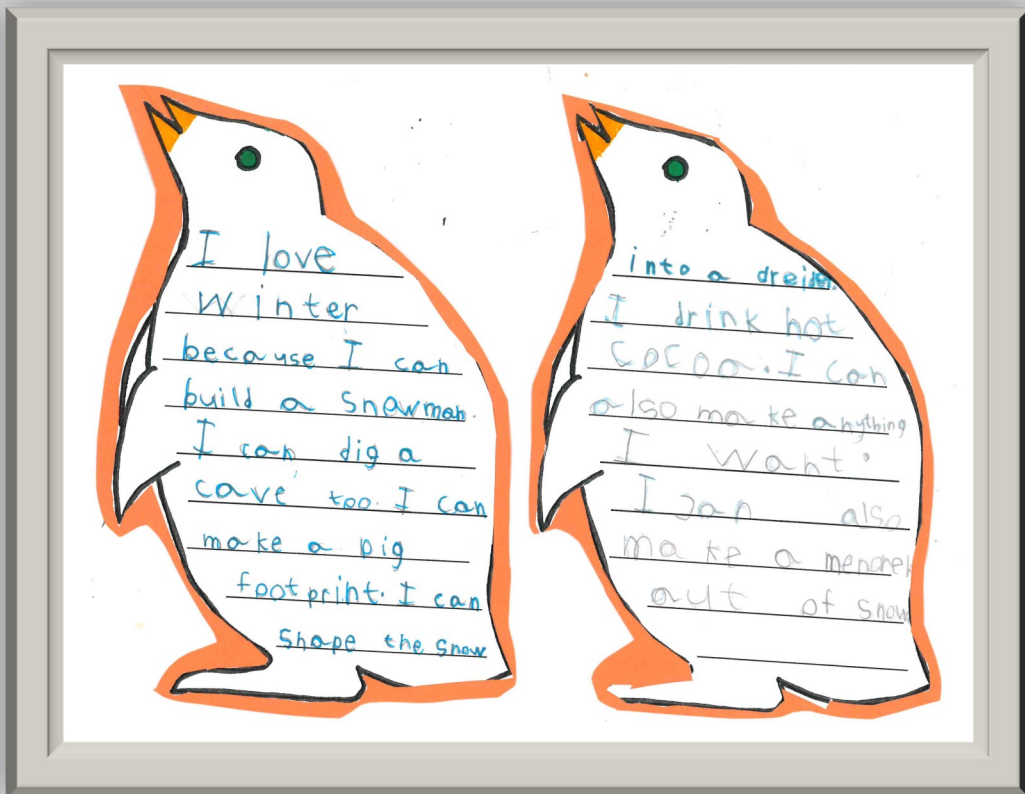 I love
Winter
because I can
build a snowman.
I can dig a
cave too. I can
make a pig
footprint. I can
shape the snow
into a dreidel.
I drink hot
cocoa. I can
also make anything
I want.
I can also
make a menorah
out of snow